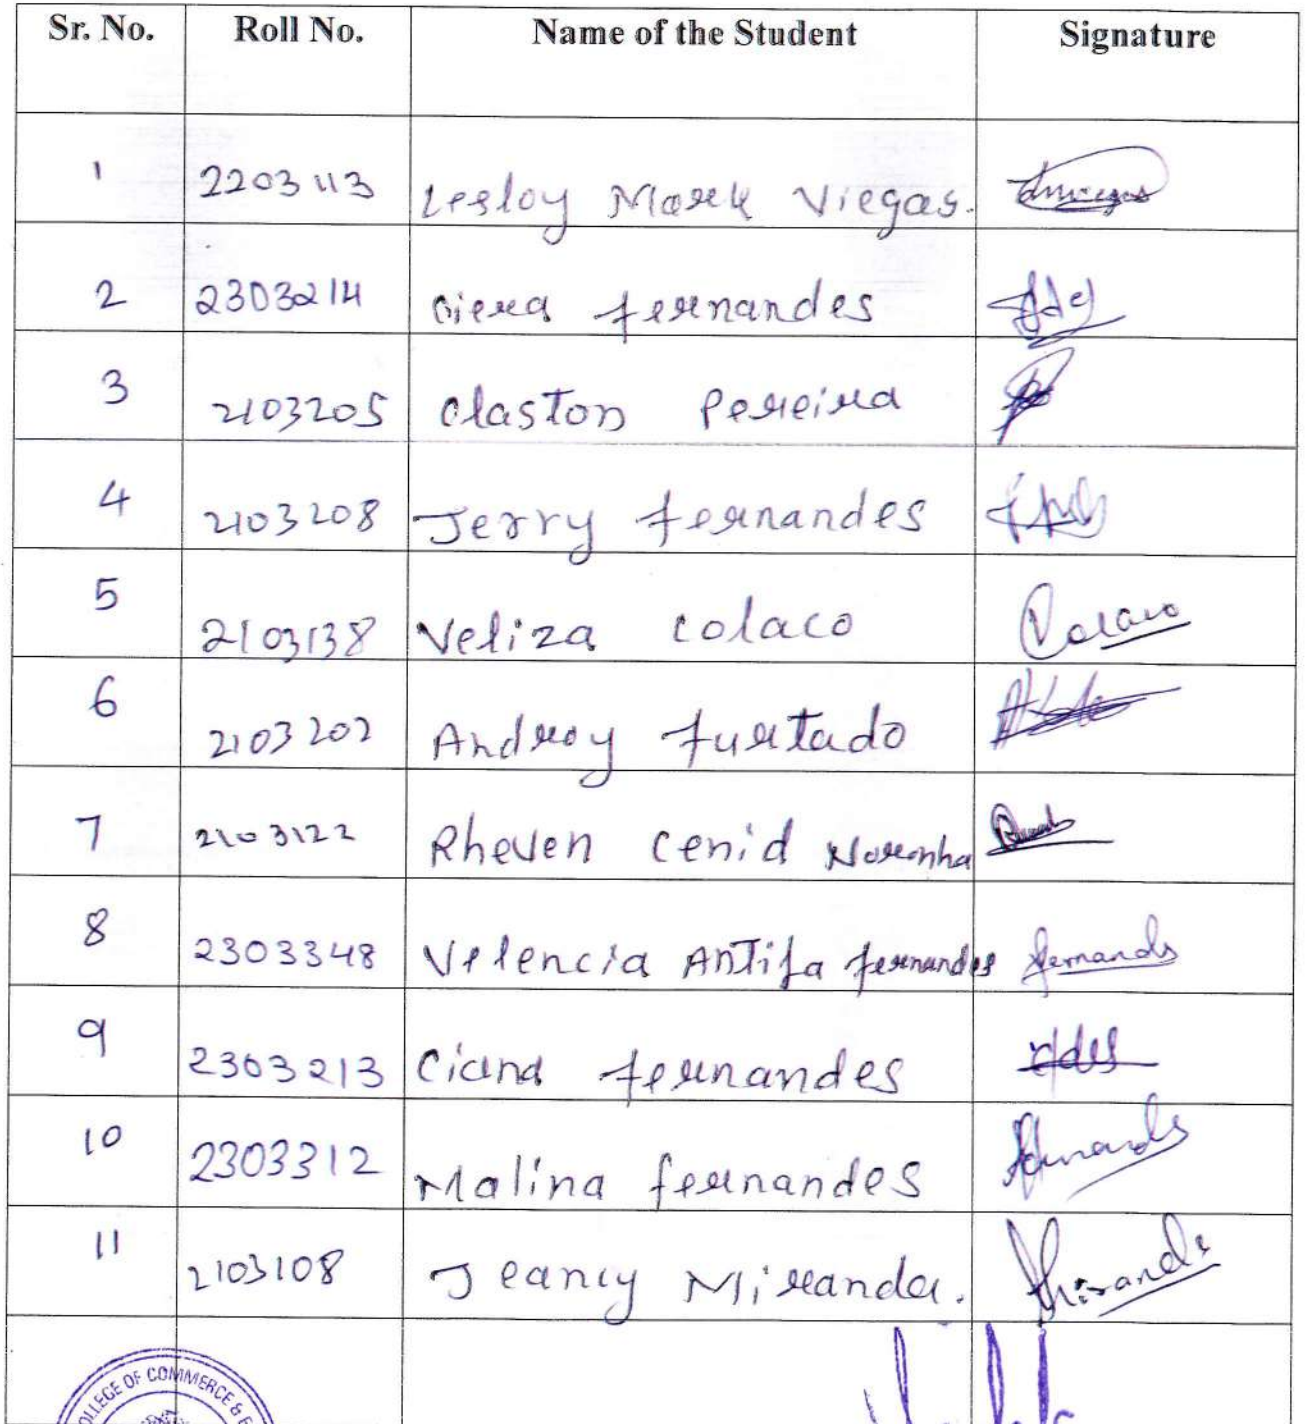 Sr. No. Roll No. Name of the Student Signature
1 2203113 Lesloy Mark Viegas.
2 2303214 Fernandes
3 2103205 Claston Pereira
4 2103208 Jerry Fernandes
5 2103138 Veliza Colaco Colaco
6 2103202 Androy Furtado
7 2103122 Rheven Cenid Noronha
8 2303348 Velencia Antifa Fernandes Fernands
9 2303213 Ciana Fernandes
10 2303312 Malina Fernandes
11 2103108 Jeancy Miranda.
COLLEGE OF COMMERCE &